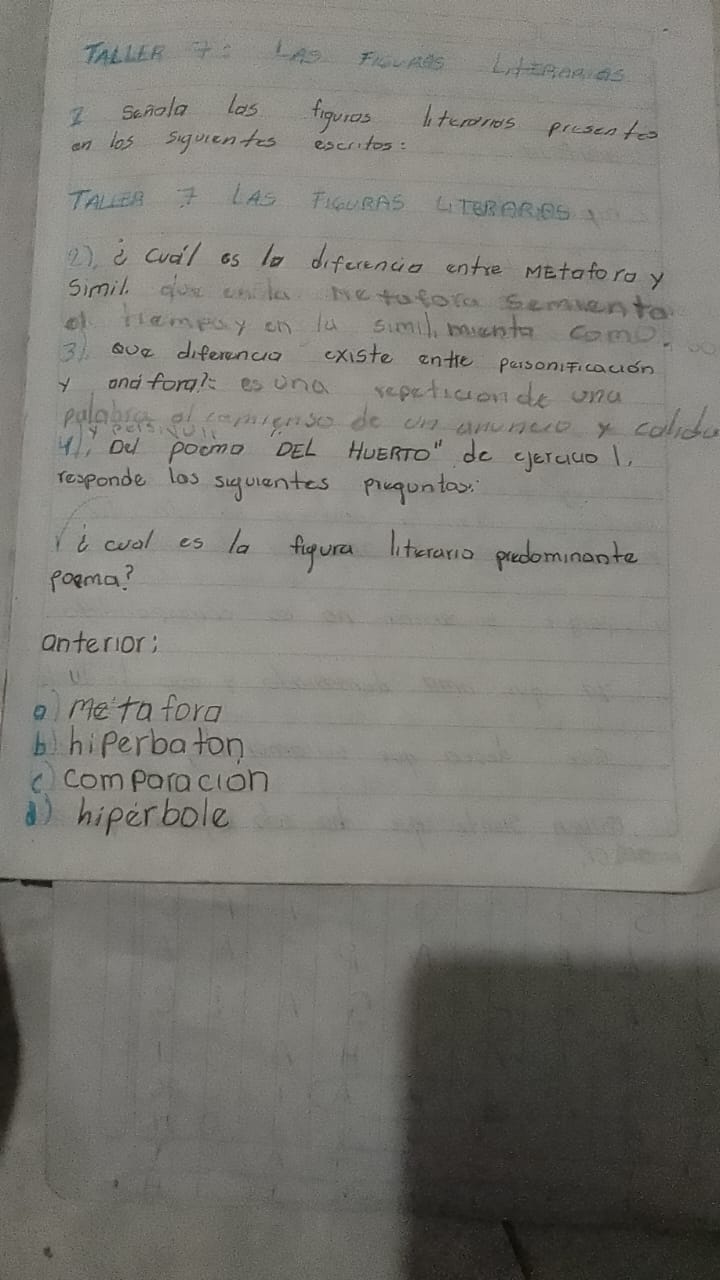 TALLER 7: LAS FIGURAS LITERARIAS
1 Señala las figuras literarias presentes
en los siguientes escritos:
TALLER 7 LAS FIGURAS LITERARIAS
2), ¿ cuál es la diferencia entre METafora y
simil. que en la metafora semienta
el tiempo y en la simil, mienta como.
3). Que diferencia existe entre personificación
y anáfora?: es una repeticion de una
palabra al comienso de un anuncio y
4), Del poema DEL HUERTO" de ejercicio 1,
responde las siguientes preguntas:
¿ cual es la figura literaria predominante
poema?
anterior:
a) metafora
b) hiperbaton
c) comparacion
d) hipérbole